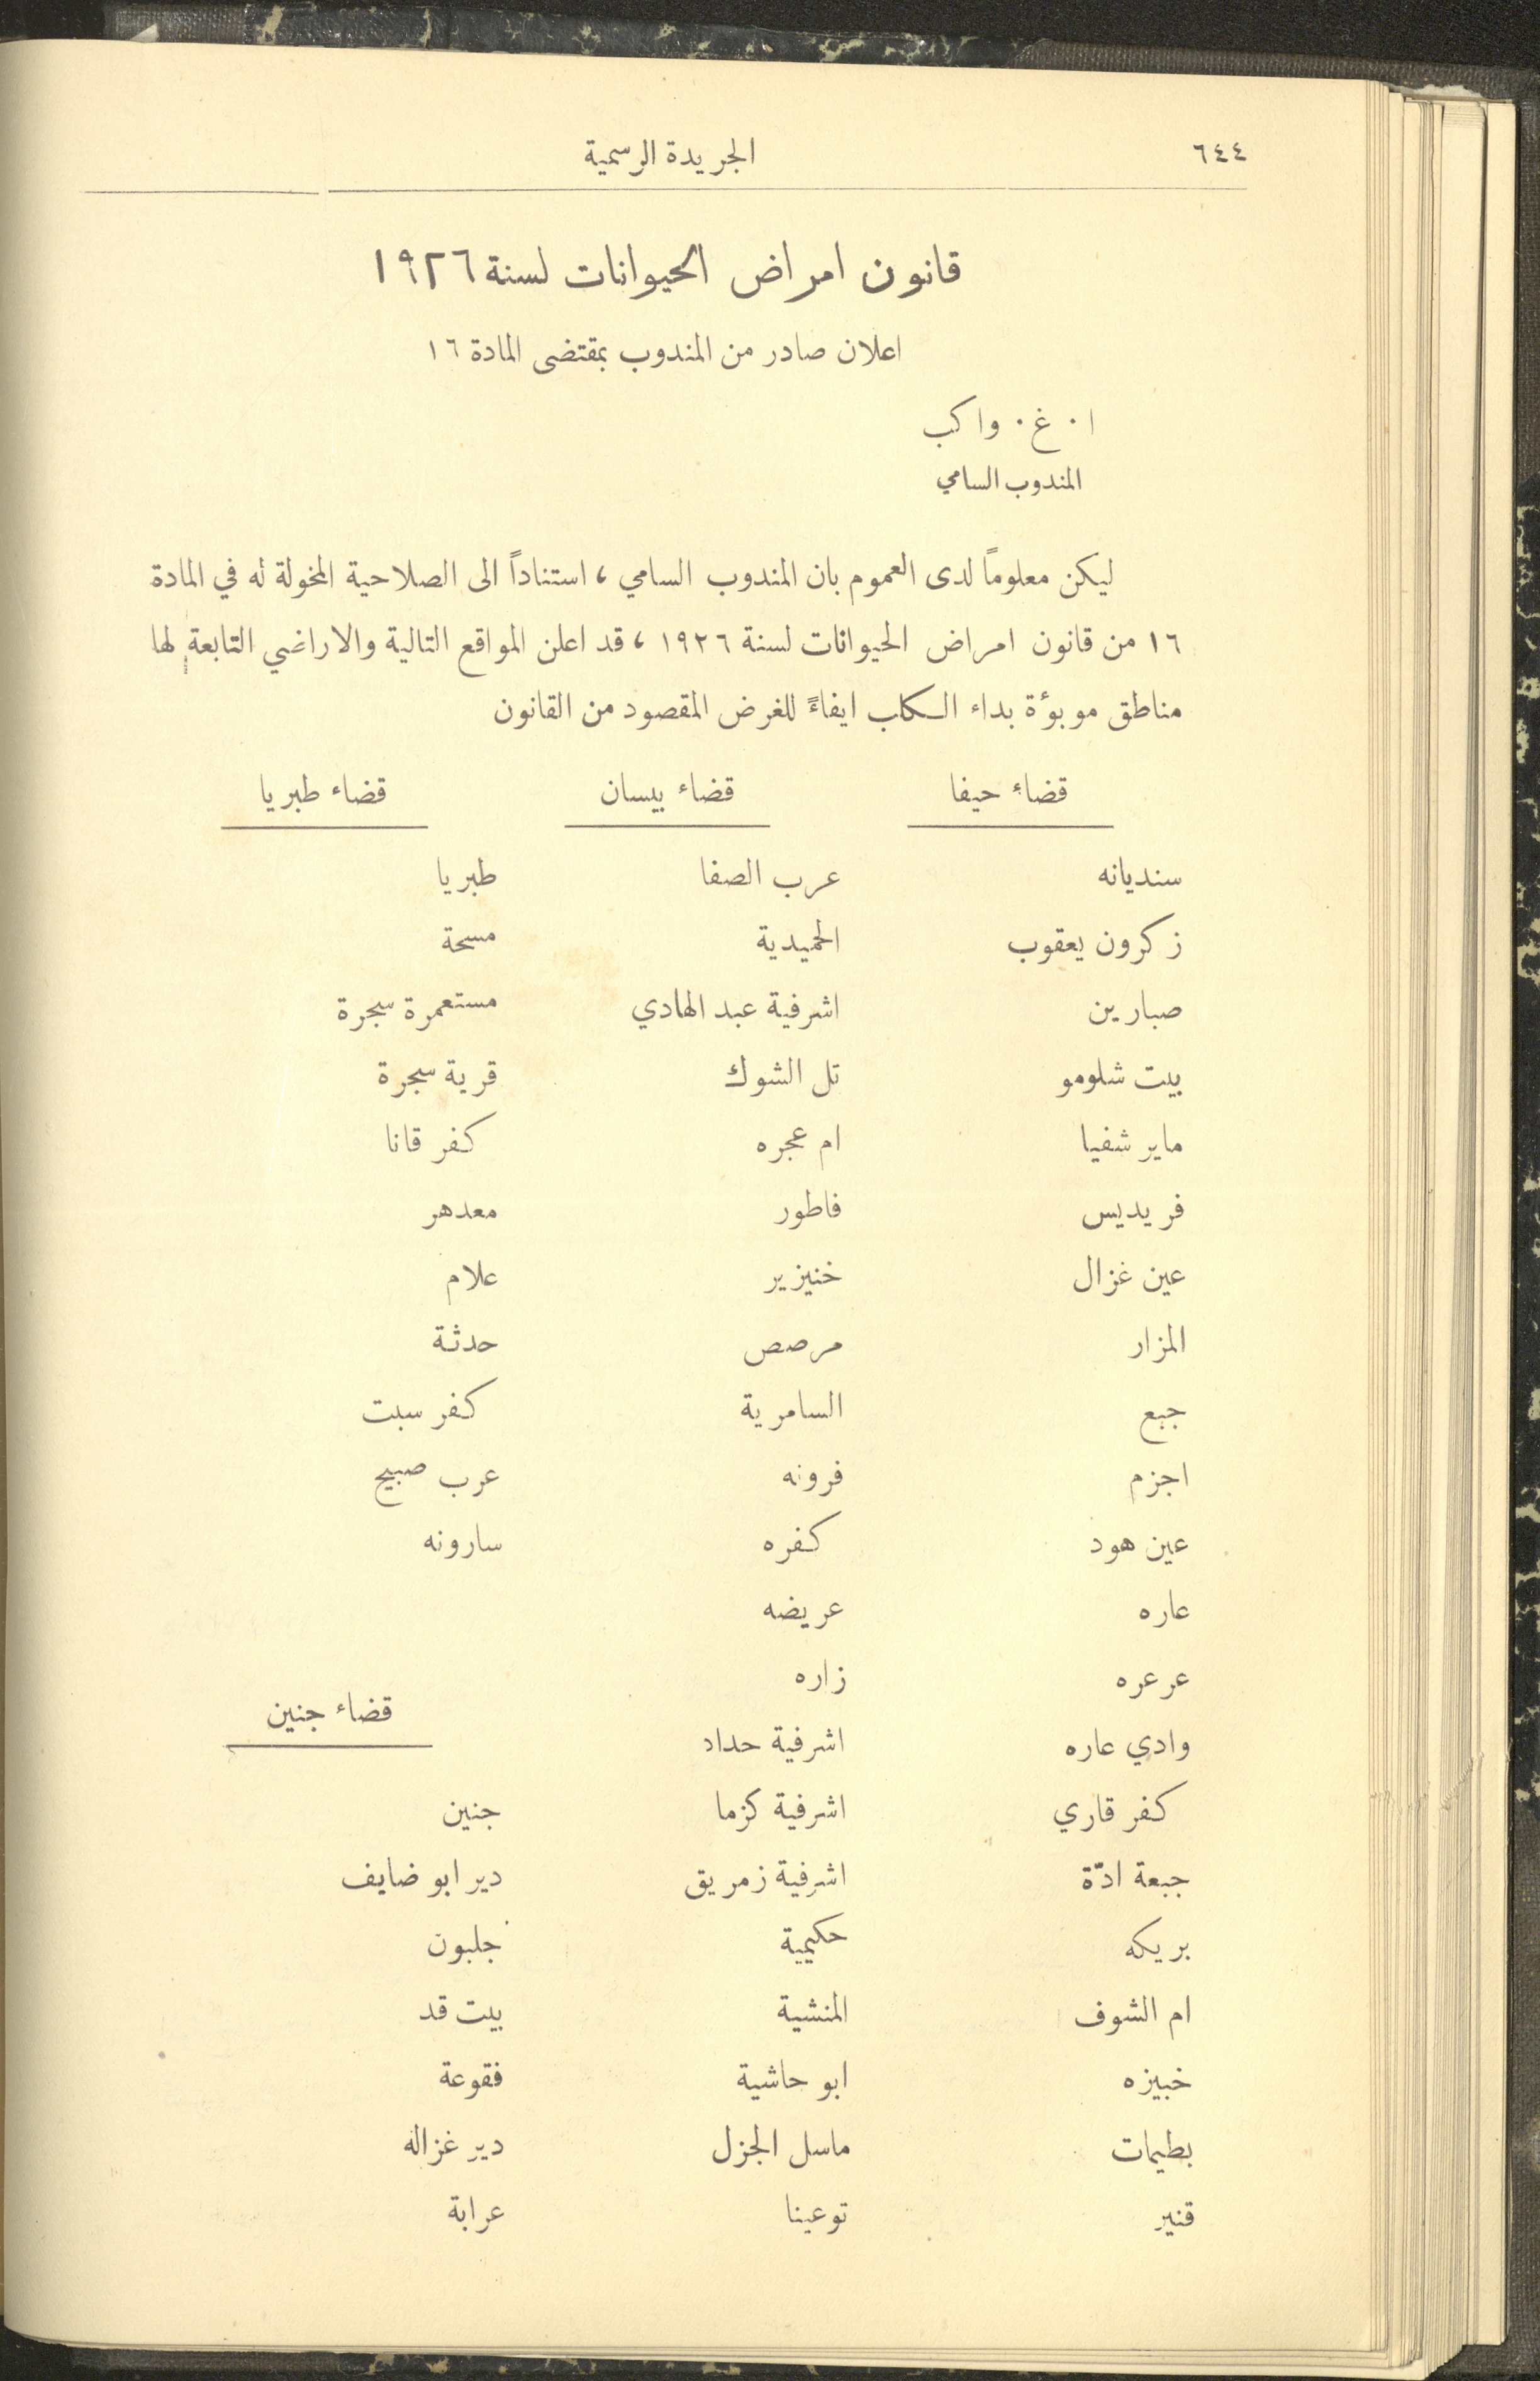 ٦٤٤
الجريدة الرسمية
قانون امراض الحيوانات لسنة ١٩٢٦
اعلان صادر من المندوب بمقتضى المادة ١٦
ا . غ . واكب
المندوب السامي
ليكن معلوماً لدى العموم بان المندوب السامي ، استناداً الى الصلاحية المخولة له في المادة
١٦ من قانون امراض الحيوانات لسنة ١٩٢٦ ، قد اعلن المواقع التالية والاراضي التابعة لها
مناطق موبوؤة بداء الكلب ايفاءً للغرض المقصود من القانون
قضاء حيفا
سنديانه
زكرون يعقوب
صبارين
بيت شلومو
ماير شفيا
فريديس
عين غزال
المزار
جبع
اجزم
عين هود
عاره
عرعره
وادي عاره
كفر قاري
جبعة ادّة
بريكه
ام الشوف
خبيزه
بطيمات
قنير
قضاء بيسان
عرب الصفا
الحميدية
اشرفية عبد الهادي
تل الشوك
ام عجره
فاطور
خنيزير
مرصص
السامرية
فرونه
كفره
عريضه
زاره
اشرفية حداد
اشرفية كزما
اشرفية زمريق
حكيمية
المنشية
ابو حاشية
ماسل الجزل
توعينا
قضاء طبريا
طبريا
مسحة
مستعمرة سجرة
قرية سجرة
كفر قانا
معدهر
علام
حدثة
كفر سبت
عرب صبيح
سارونه
قضاء جنين
جنين
دير ابو ضايف
جلبون
بيت قد
فقوعة
دير غزاله
عرابة